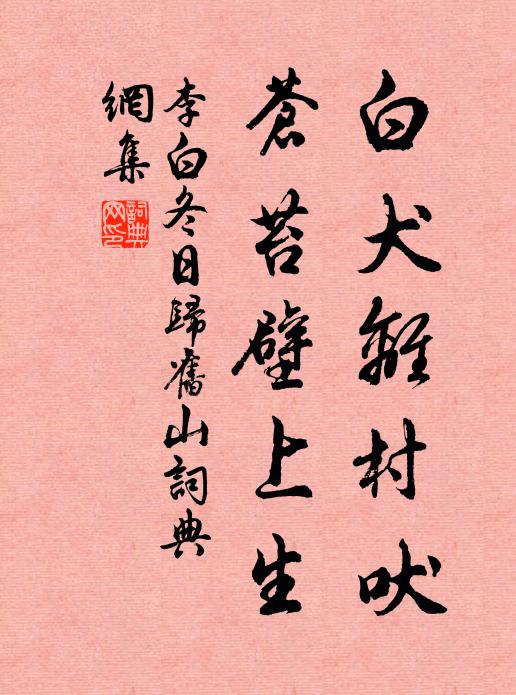 白犬離村吠
蒼苔壁上生
李白冬日歸舊山詞典
網集
詞典網印